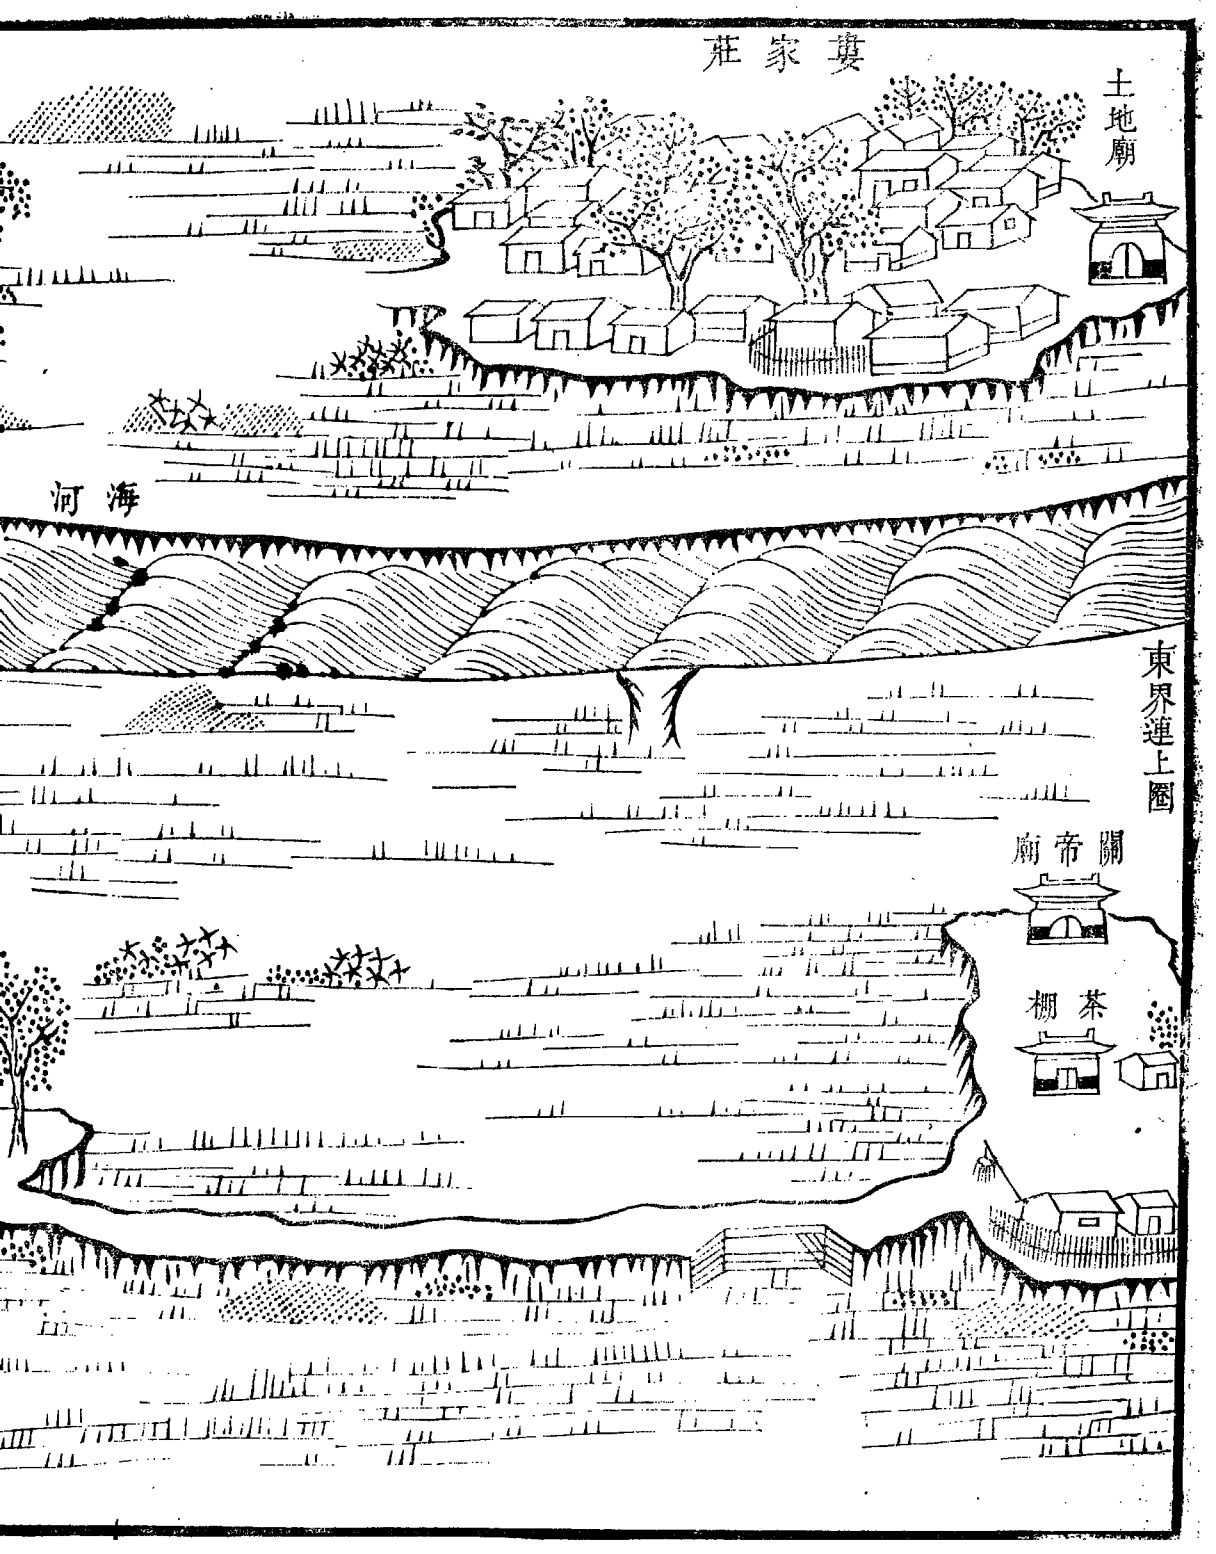 婁家莊
土地廟
海河
東界連上圈
關帝廟
茶棚